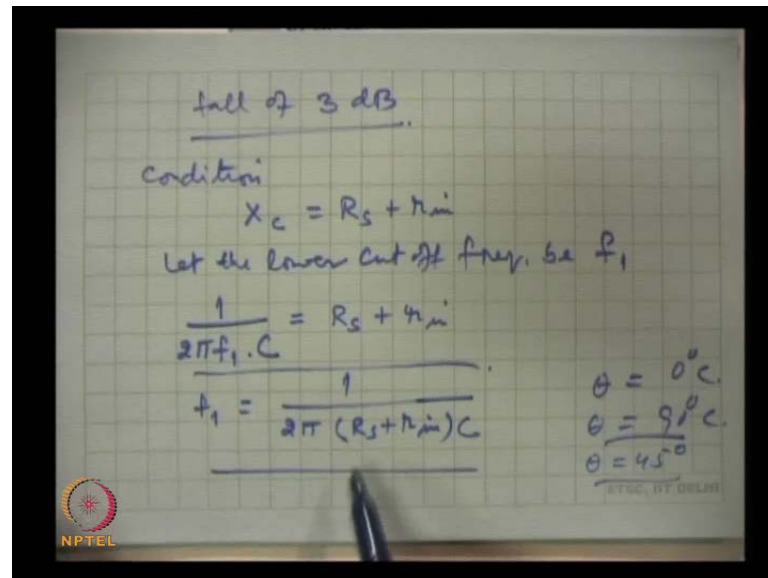 fall of 3 dB.
Condition
X_c = R_s + r_in
Let the lower cut off freq. be f_1
1 / 2πf_1 . C = R_s + r_in
f_1 = 1 / 2π (R_s + r_in) C
θ = 0°C.
θ = 90°C.
θ = 45°
ETSC, IIT DELHI
NPTEL